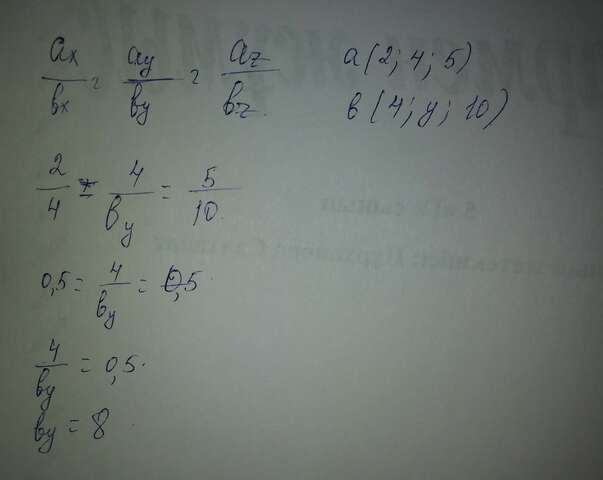 ax/bx = ay/by = az/bz
a(2; 4; 5)
b(4; y; 10)
2/4 = 4/by = 5/10
0,5 = 4/by = 0,5
4/by = 0,5
by = 8